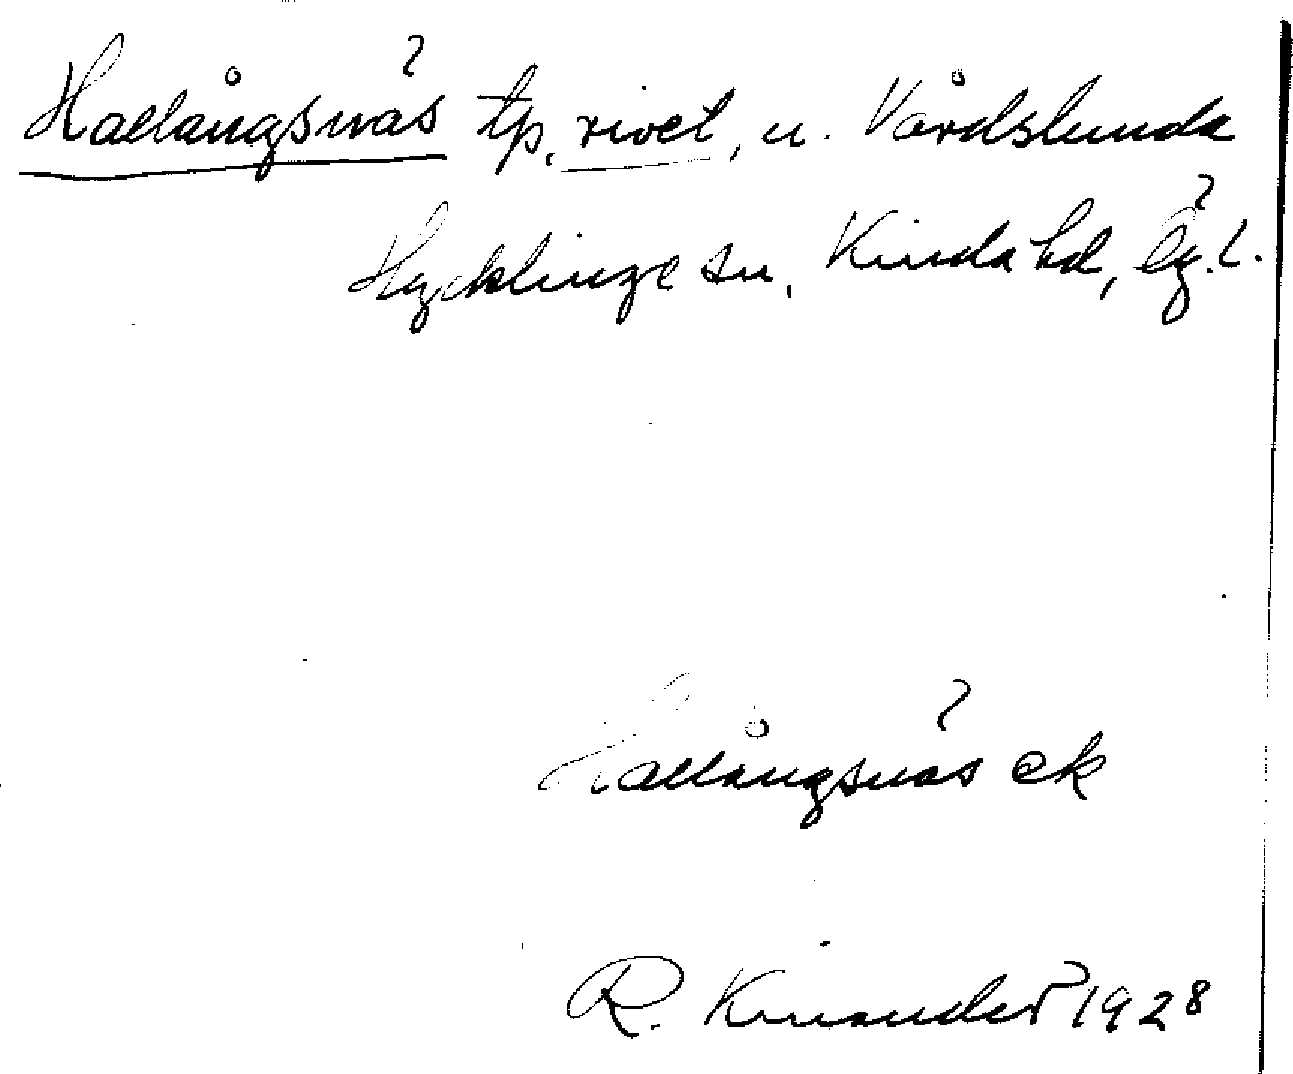 Hallångsnäs tp, rivet, u. Vårdslunda
Hycklinge sn, Kinda hd, Ög.l.
Hallångsnäs ek
R. Kinander 1928